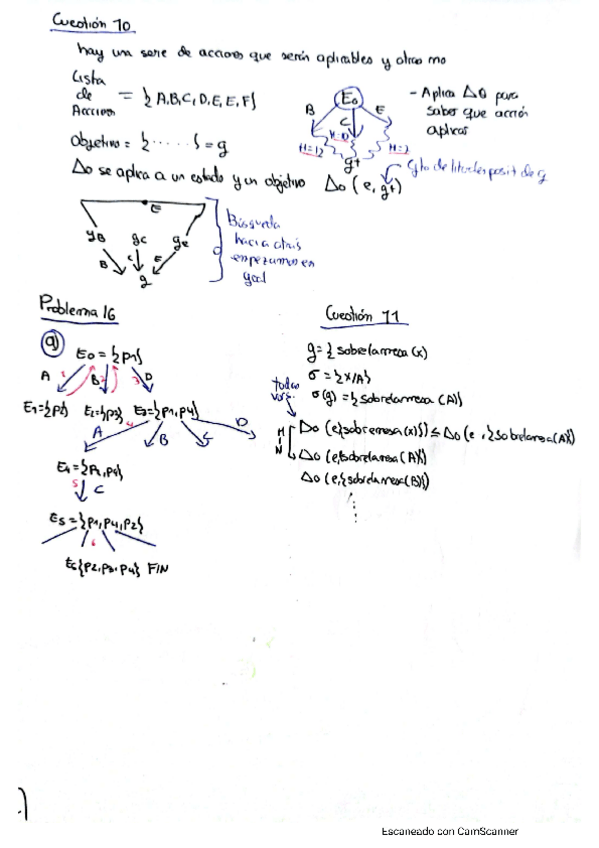 Cuestión 10
hay una serie de acciones que serán aplicables y otras no
Lista de Acciones = { A,B,C,D,E,E,F}
Objetivo = {......} = g
- Aplica Δ0 para
saber que acción
aplicar
E0
B
C
E
H=12
H=10
H=2
g+
Δo se aplica a un estado y un objetivo Δo (e, g+)
E
gB gc ge
B C E
g
Búsqueda
hacia atrás
empezamos en
goal
Problema 16
a)
E0 = {p1}
A 1 B 2 3 D
E1={p1} E2={p3} E3={p1,p4}
4
A B C D
E4={p1,p4}
5 C
E5={p1,p4,p2}
6
E6{p2,p3,p4} FIN
Cuestión 11
g= { sobrelamesa (x)
σ = {x/A}
σ(g) = { sobrelamesa (A)}
todas
vars.
MIN
Δo (e{sobremesa(x)}) ≤ Δo (e, {sobrelamesa(A)})
Δo (e,{sobrelamesa(A)})
Δo (e,{sobrelamesa(B)})
Escaneado con CamScanner